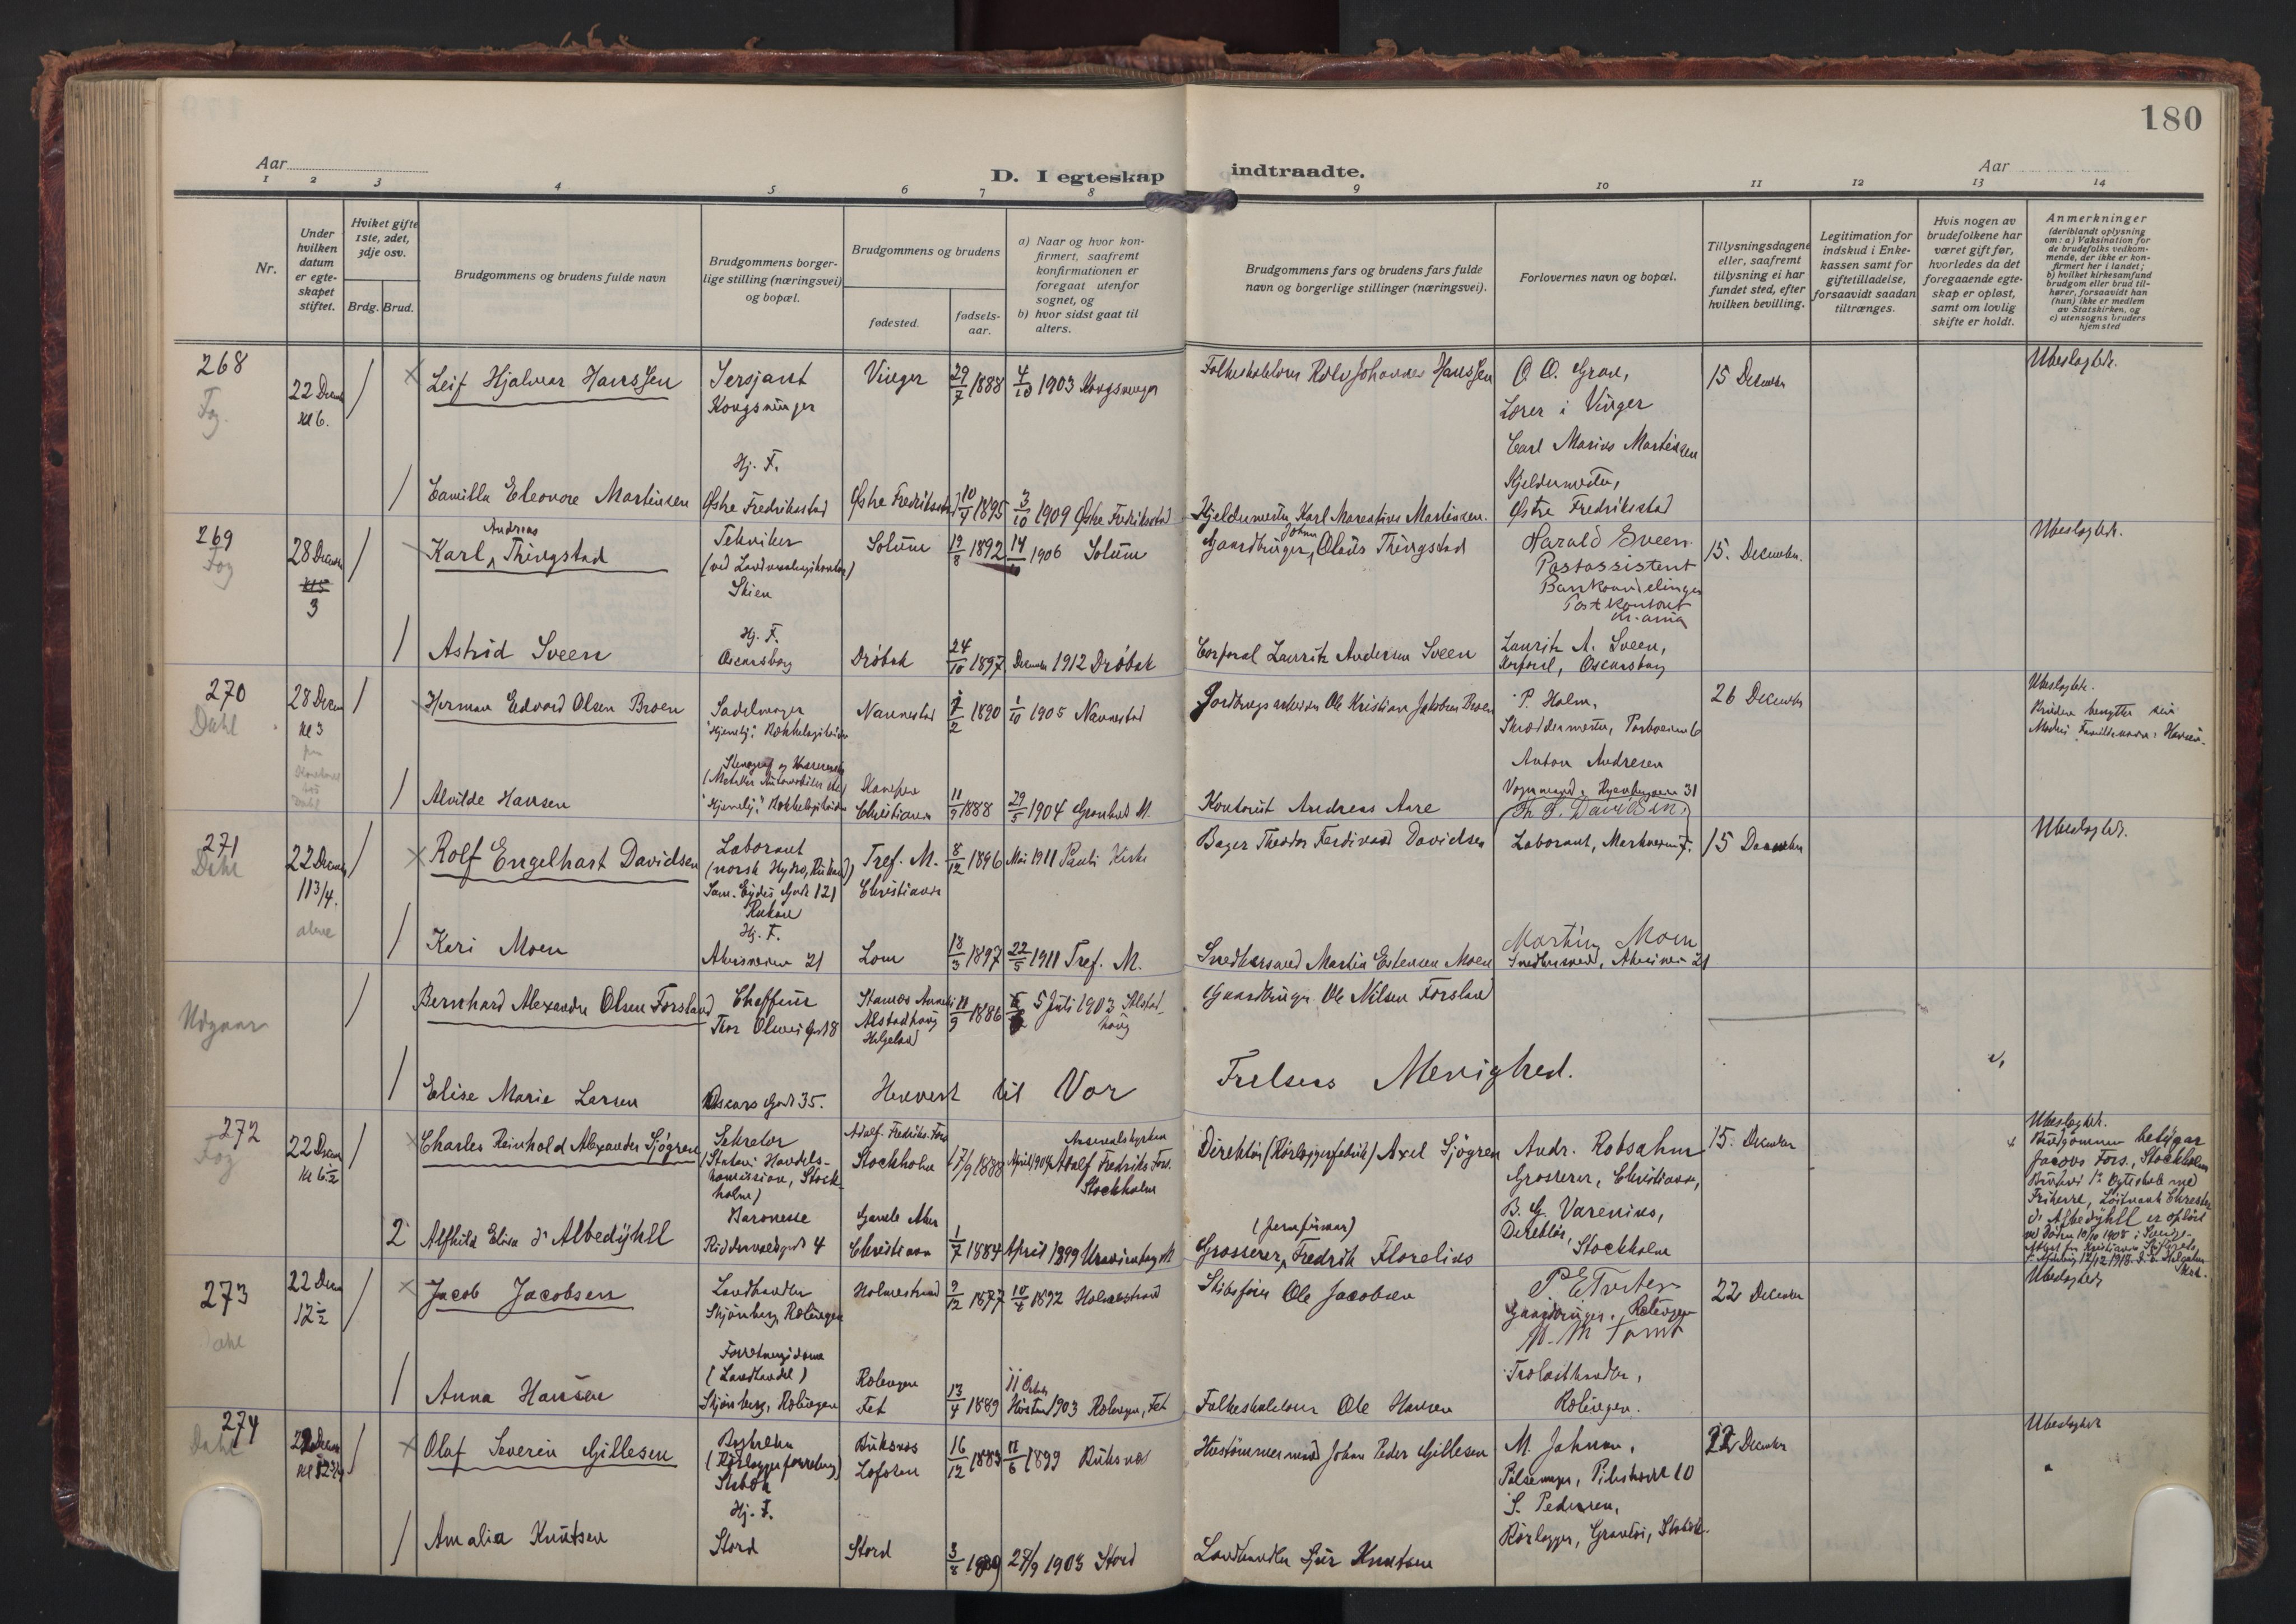 180
Aar
D. I egteskap indtraadte.
Aar
1 2 3 4 5 6 7 8 9 10 11 12 13 14
Nr.
Under hvilken datum er egteskapet stiftet.
Hviket gifte 1ste, 2det, 3dje osv.
Brdg. Brud.
Brudgommens og brudens fulde navn
Brudgommens borgerlige stilling (næringsvei) og bopæl.
Brudgommens og brudens
fødested.
fødselsaar.
a) Naar og hvor konfirmert, saafremt konfirmationen er foregaat utenfor sognet, og
b) hvor sidst gaat til alters.
Brudgommens fars og brudens fars fulde navn og borgerlige stillinger (næringsvei).
Forlovernes navn og bopæl.
Tillysningsdagene eller, saafremt tillysning ei har fundet sted, efter hvilken bevilling.
Legitimation for indskud i Enkekassen samt for giftetilladelse, forsaavidt saadan tiltrænges.
Hvis nogen av brudefolkene har været gift før, hvorledes da det foregaaende egteskap er opløst, samt om lovlig skifte er holdt.
Anmerkninger
(deriblandt oplysning om: a) Vaksination for de brudefolks vedkommende, der ikke er konfirmert her i landet;
b) hvilket kirkesamfund brudgom eller brud tilhører, forsaavidt han (hun) ikke er medlem av Statskirken, og
c) utensogns bruders hjemsted
268
22 Decem
kl 6.
Leif Hjalmar Hanssen
Sersjant
Kongsvinger
Vinger
29/7 1888
4/10 1903 Kongsvinger
O. O. Grav,
Lærer i Vinger
15 December
Ubeslegtet.
Camilla Eleonore Martinsen
Hj. F.
Østre Fredrikstad
Østre Fredrikstad
10/4 1895
3/10 1909 Østre Fredrikstad
Karl Marentius Martinsen.
Carl Marius Martinsen
Østre Fredrikstad
269
Fog
28 Decem
kl 5
3
Karl Andreas Thingstad
Tekniker
Skien
Solum
12/8 1892
14/10 1906 Solum
Gaardbruger, Johan Olaus Thingstad
Harald Sveen
Postassistent
Postkontoret
Kr.ania
15. December.
Ubeslegtet.
Astrid Sveen
Hj. F.
Oscarsborg
Drøbak
24/10 1897
December 1912 Drøbak
Corporal Lauritz Andersen Sveen
Lauritz A. Sveen,
Korporal, Oscarsborg
270
Dahl
28 Decem
kl 3
Herman Edvard Olsen Broen
Sadelmager
Nannestad
2 1890
1/10 1905 Nannestad
Ole Kristian Jakobsen Broen
P. Holm,
Skræddermester,
26 December
Ubeslegtet.
Alvilde Hansen
Christiania
11/9 1888
29/5 1904 Grønland M.
Kontorist Andreas Aare
Anton Andresen
271
Dahl
22 Decem
11 3/4.
alene
Rolf Engelhart Davidsen
Laborant
(norsk Hydro, Rjukan)
Sam. Eydes Gade 121
Rjukan
Tref. M.
Christiania
8/12 1896
Mai 1911 Pauli Kirke
Bager Theodor Ferdinand Davidsen
Th. F. Davidsen
Laborant,
15 December
Ubeslegtet.
Kari Moen
Hj. F.
Akersveien 21
Lom
18/3 1897
22/5 1911 Tref. M.
Snedkersvend Martin Estensen Moen
Martin Moen
Snedkersvend, Akersveien 21
Udgaar
Bernhard Alexander Olsen Forsland
Chaffeur
Thor Olsens Gade 18
Alstadhaug
Helgeland
11/9 1886
5 Juli 1903 Alstadhaug
Gaardbruger Ole Nilsen Forsland
Elise Marie Larsen
Oscars Gade 35.
Henvist til Vor Frelsers Menighed.
272
Fog
22 Decem
kl 6 1/2
Charles Reinhold Alexander Sjögren
Sekretær
(Statens Handelskommission, Stockholm)
Adolf Fredriks Förs
Stockholm
17/9 1888
April 1904 Adolf Fredriks Förs.
Stockholm
Direktör (Rörläggerfabrik) Axel Sjögren
Andr. Robsahm
Grosserer, Christiania,
15. December
Ubeslegtet.
Brudgommen betygar
Jacobs Förs., Stockholm
2
Alfhild Elisa d'Albedyhll
Baronesse
Riddervoldsgade 4
Gamle Aker
Christiania
1/7 1884
April 1899 Uranienborg M
Grosserer, (jernfirma) Fredrik Florelius
B. G. Varenius,
Direktör,
Stockholm
273
Dahl
22 Decem
12 1/2
Jacob Jacobsen
Landhandler
Skjønberg, Rælingen
Holmestrand
9/12 1877
10/4 1892 Holmestrand
Skibsfører Ole Jacobsen
Gaardbruger, Rælingen
22 December
Ubeslegtet
Anna Hansen
(Landhandel)
Skjønberg, Rælingen
Rælingen
Fet
13/4 1889
Høsten 1903 Rælingen, Fet
Folkeskolelærer Ole Hansen
Trælasthandler,
Rælingen.
274
Dahl
22 Decem
Olaf Severin Gillesen
Stabæk
Buksnes
Lofoten
16/12 1883
11/6 1899 Buksnes
Hustømmermand Johan Peder Gillesen
M. Johnsen,
Pølsemager, Pilestrædet 10
22 December
Ubeslegtet
Amalia Knutsen
Hj. F.
Stord
Stord
3/8 1889
27/9 1903 Stord
Landhandler Sjur Knutsen
S. Pedersen,
Rørlægger, Granlien, Stabæk.